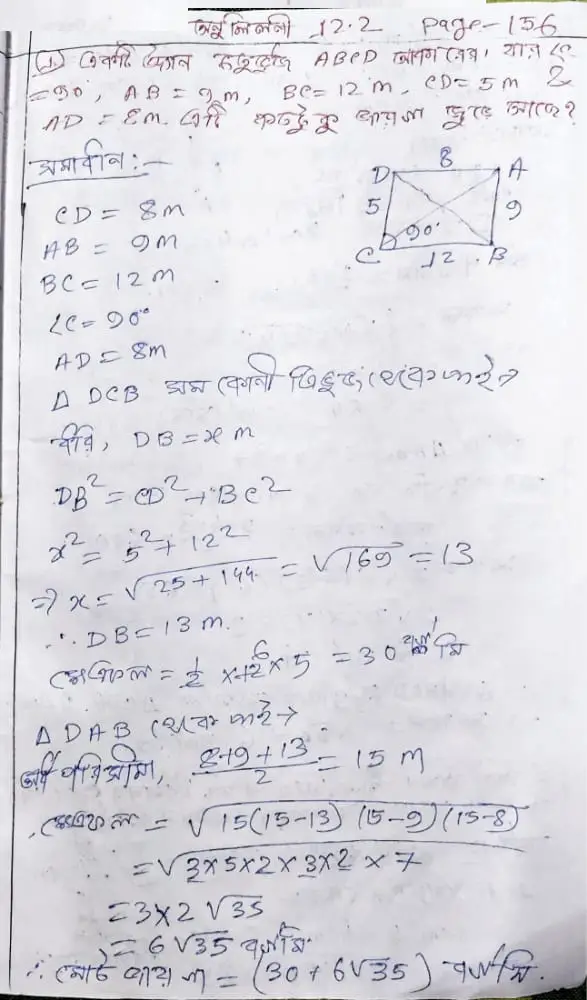 অনুশিলনী 12.2 page-156
(1) একটা উদ্যান চতুর্ভুজ ABCD আকাৰৰ, যাৰ ∠C
=90°, AB = 9m, BC= 12 m, CD= 5 m &
AD = 8m. এটা কতটুকু জায়গা জুৰে আছে?
সমাধান:—
CD = 8m
AB = 9m
BC = 12m
∠C= 90°
AD = 8m
D 8 A
5 9
90°
C 12 B
Δ DCB সমকোনী ত্রিভুজ থেকে পাই→
ধৰি, DB = x m
DB² = CD² + BC²
x² = 5² + 12²
⇒ x = √25 + 144 = √169 = 13
∴ DB = 13 m.
ক্ষেত্রফল = 1/2 × 12 × 5 = 30 বর্গ মি
6
Δ DAB থেকে পাই→
অর্ধ পরিসীমা, 8+9+13/2 = 15 m
ক্ষেত্রফল = √15(15-13) (15-9) (15-8)
= √3×5×2×3×2×7
= 3×2 √35
= 6√35 বর্গমি
∴ মোট জায়গা = (30 + 6√35) বর্গমি.